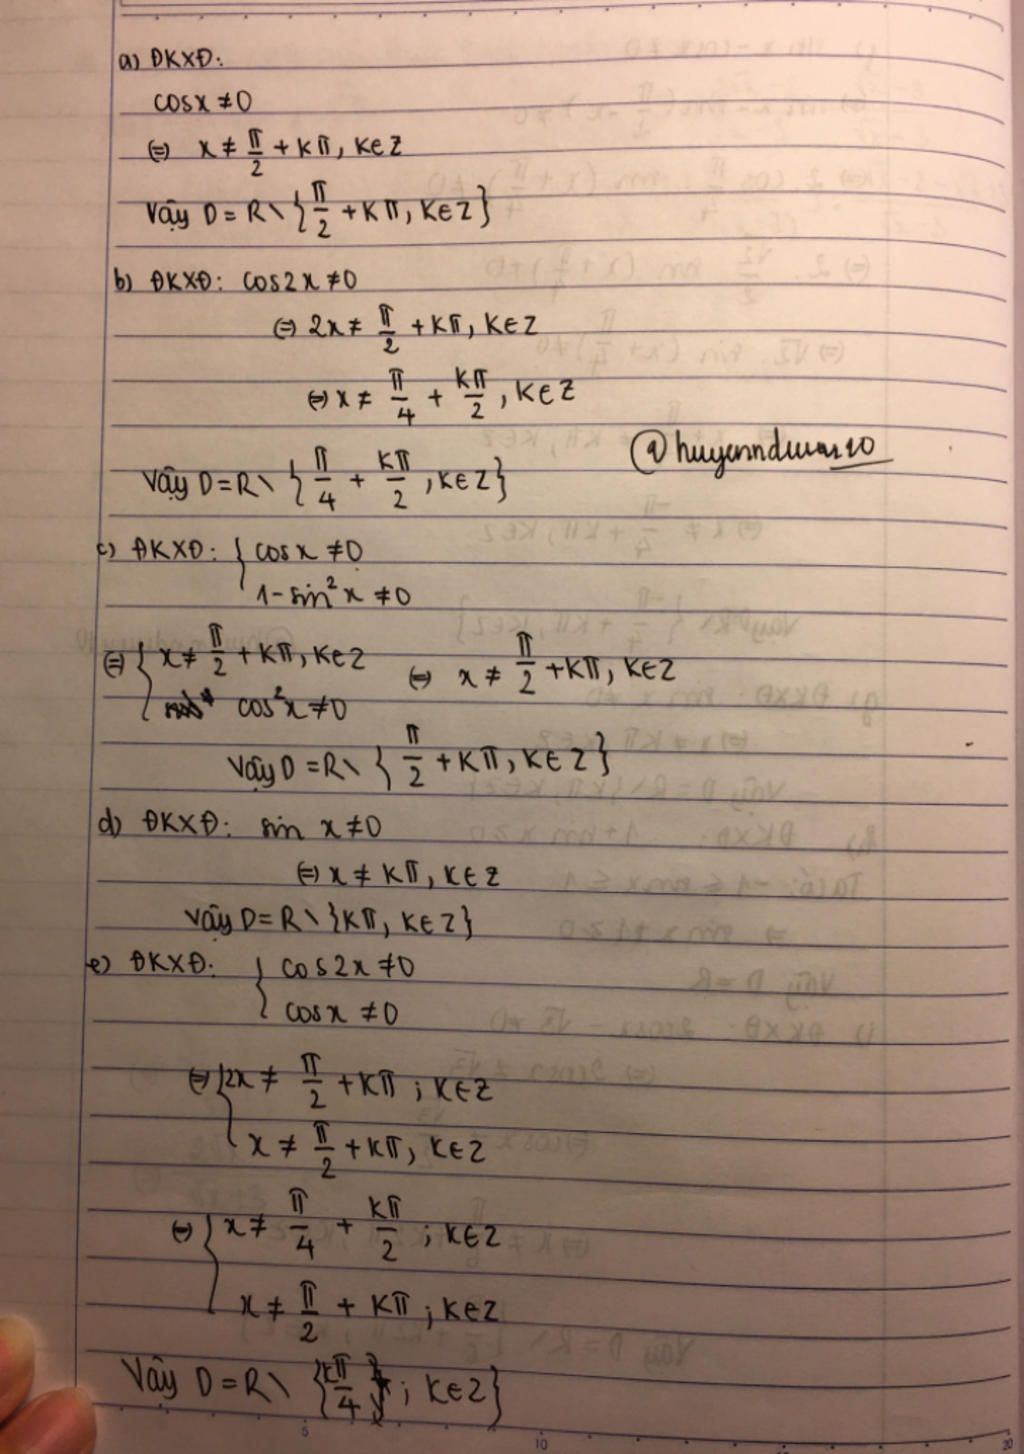 a) ĐKXĐ:
cosx ≠ 0
⇔ x ≠ π/2 + kπ, k∈Z
Vậy D = R \ {π/2 + kπ, k∈Z}
b) ĐKXĐ: cos2x ≠ 0
⇔ 2x ≠ π/2 + kπ, k∈Z
⇔ x ≠ π/4 + kπ/2, k∈Z
Vậy D = R \ {π/4 + kπ/2, k∈Z}
c) ĐKXĐ: { cosx ≠ 0
1 - sin²x ≠ 0
⇔ { x ≠ π/2 + kπ, k∈Z ⇔ x ≠ π/2 + kπ, k∈Z
cos²x ≠ 0
Vậy D = R \ {π/2 + kπ, k∈Z}
d) ĐKXĐ: sin x ≠ 0
⇔ x ≠ kπ, k∈Z
Vậy D = R \ {kπ, k∈Z}
e) ĐKXĐ: { cos2x ≠ 0
cosx ≠ 0
⇔ { 2x ≠ π/2 + kπ; k∈Z
x ≠ π/2 + kπ, k∈Z
⇔ { x ≠ π/4 + kπ/2; k∈Z
x ≠ π/2 + kπ; k∈Z
Vậy D = R \ {kπ/4; k∈Z}
5 10 20